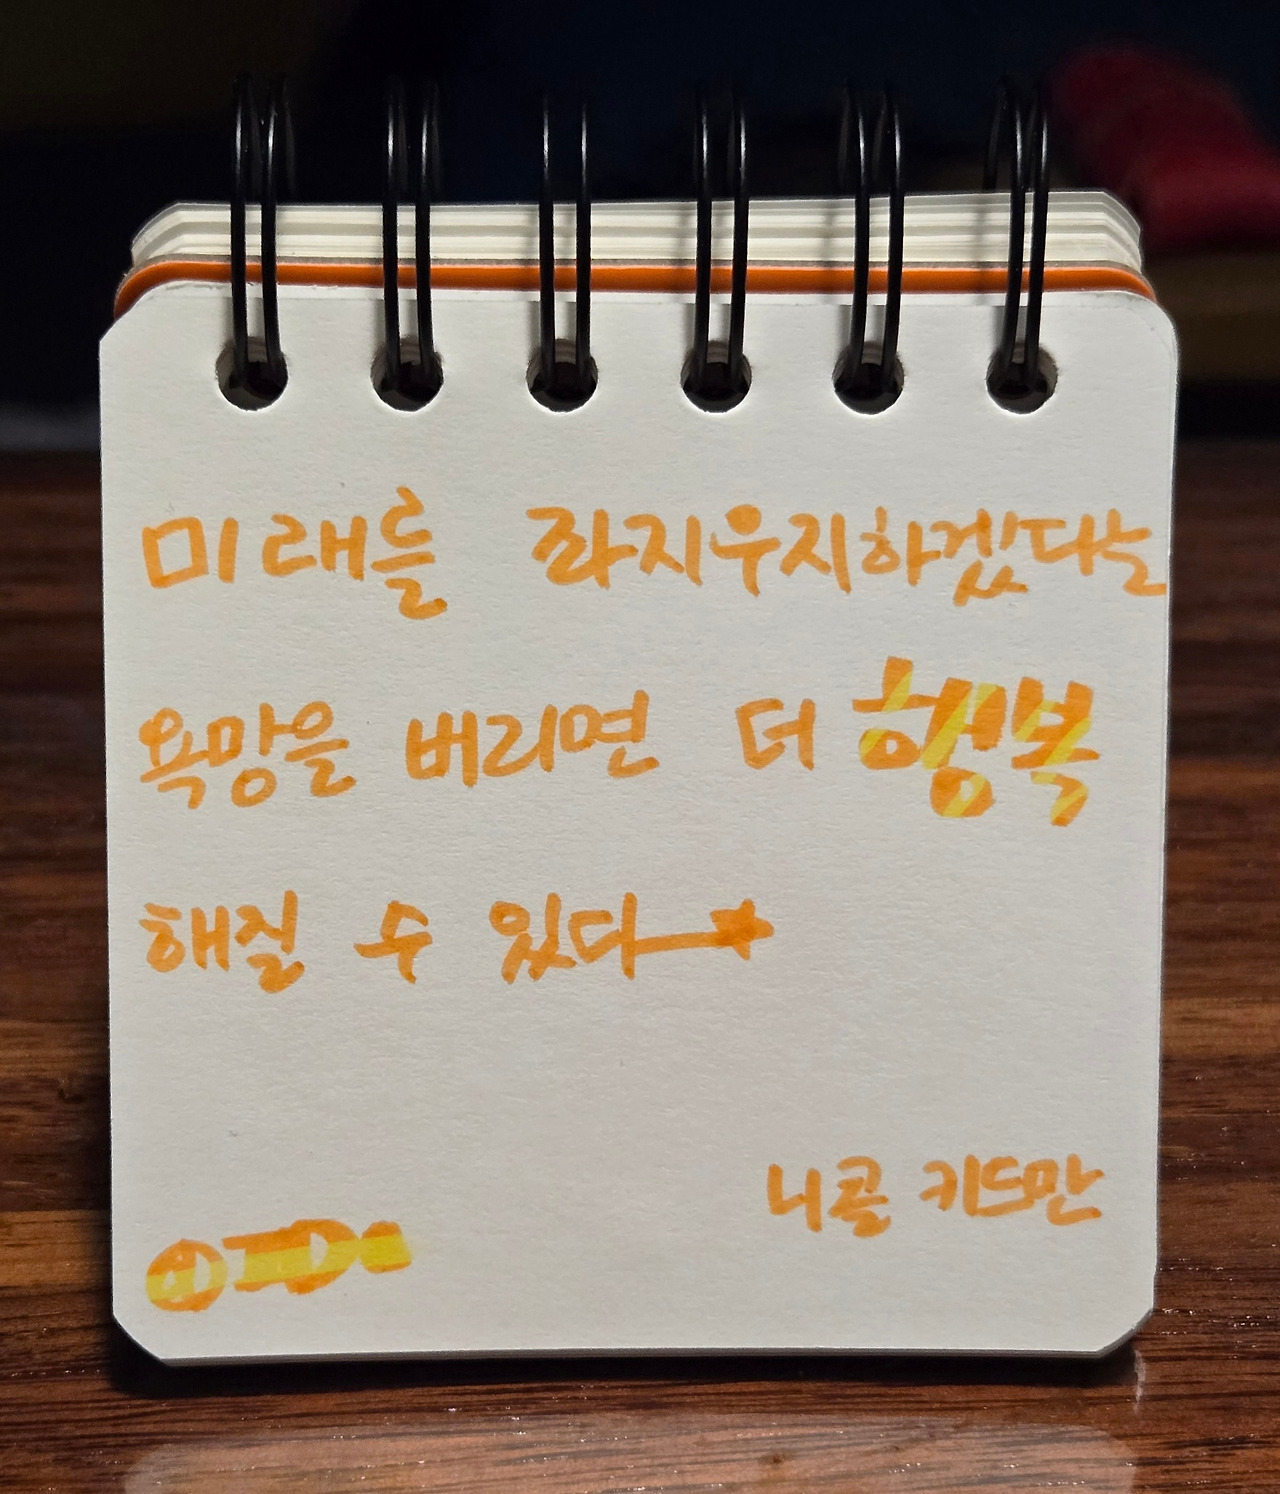 미래를 좌지우지하겠다는
욕망을 버리면 더 행복
해질 수 있다
니콜 키드만